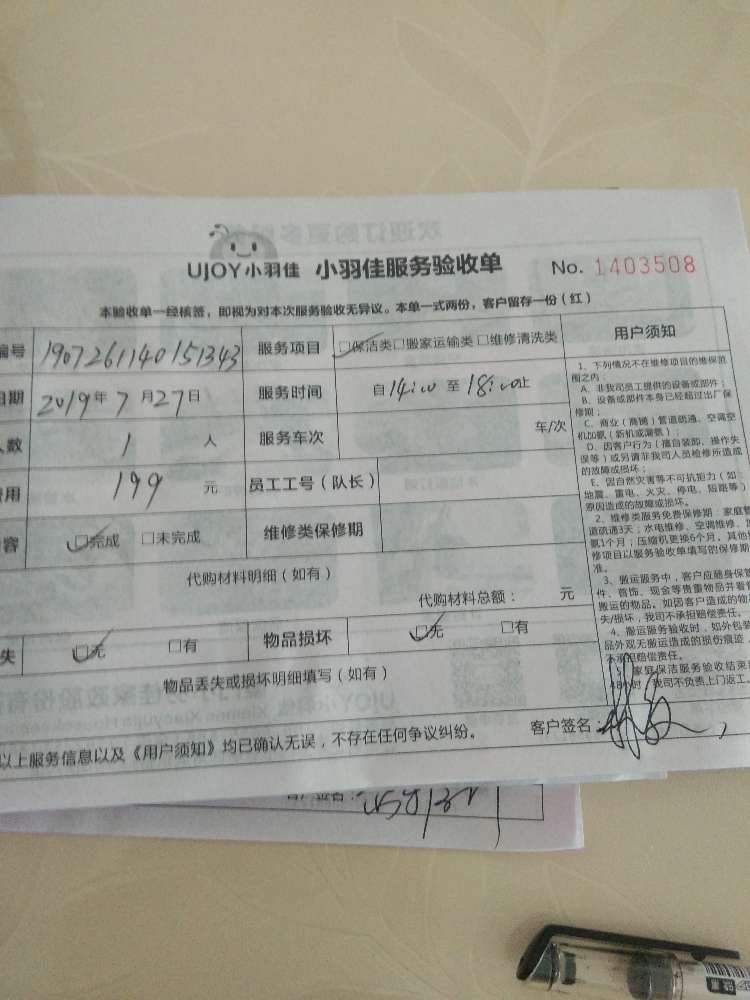 UJOY小羽佳 小羽佳服务验收单 No. 1403508
本验收单一经核签，即视为对本次服务验收无异议。本单一式两份，客户留存一份（红）
编号 1907261140151343 服务项目 □保洁类□搬家运输类□维修清洗类 用户须知
日期 2019年7月27日 服务时间 自14:00至18:00止
人数 1 人 服务车次 车/次
费用 199 元 员工工号（队长）
容 □完成 □未完成 维修类保修期
代购材料明细（如有）
代购材料总额： 元
失 □无 □有 物品损坏 □无 □有
物品丢失或损坏明细填写（如有）
以上服务信息以及《用户须知》均已确认无误，不存在任何争议纠纷。 客户签名：
1、下列情况不在维修项目的维保范
围之内：
A、非我司员工提供的设备或部件；
B、设备或部件本身已经超过出厂保
修期；
C、商业（商铺）管道疏通、空调空
机加氨（新机或漏氨）；
D、因客户行为（擅自装卸、操作失
误等）或另请非我司人员检修所造成
的故障或损坏；
E、因自然灾害等不可抗拒力（如
地震、雷电、火灾、停电、短路等）
原因造成的故障或损坏。
2、维修类服务免费保修期：家庭管
道疏通3天；水电维修、空调维修、
氨1个月；压缩机更换6个月，其他
修项目以服务验收单填写的保修期
准。
3、搬运服务中，客户应随身保管
件、首饰、现金等贵重物品并看管
搬运的物品。如因客户造成的物
失/损坏，我司不承担赔偿责任。
4、搬运服务验收时，如外包装
品外观无搬运造成的损伤痕迹，
不承担赔偿责任。
家庭保洁服务验收结束
48小时，我司不负责上门返工。